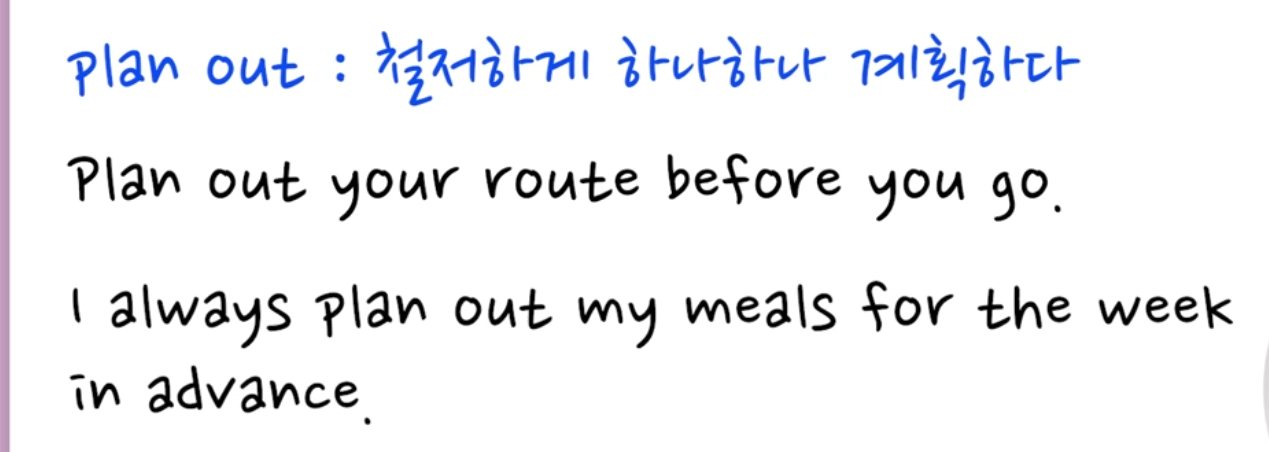 Plan out : 철저하게 하나하나 계획하다
Plan out your route before you go.
I always plan out my meals for the week
in advance.